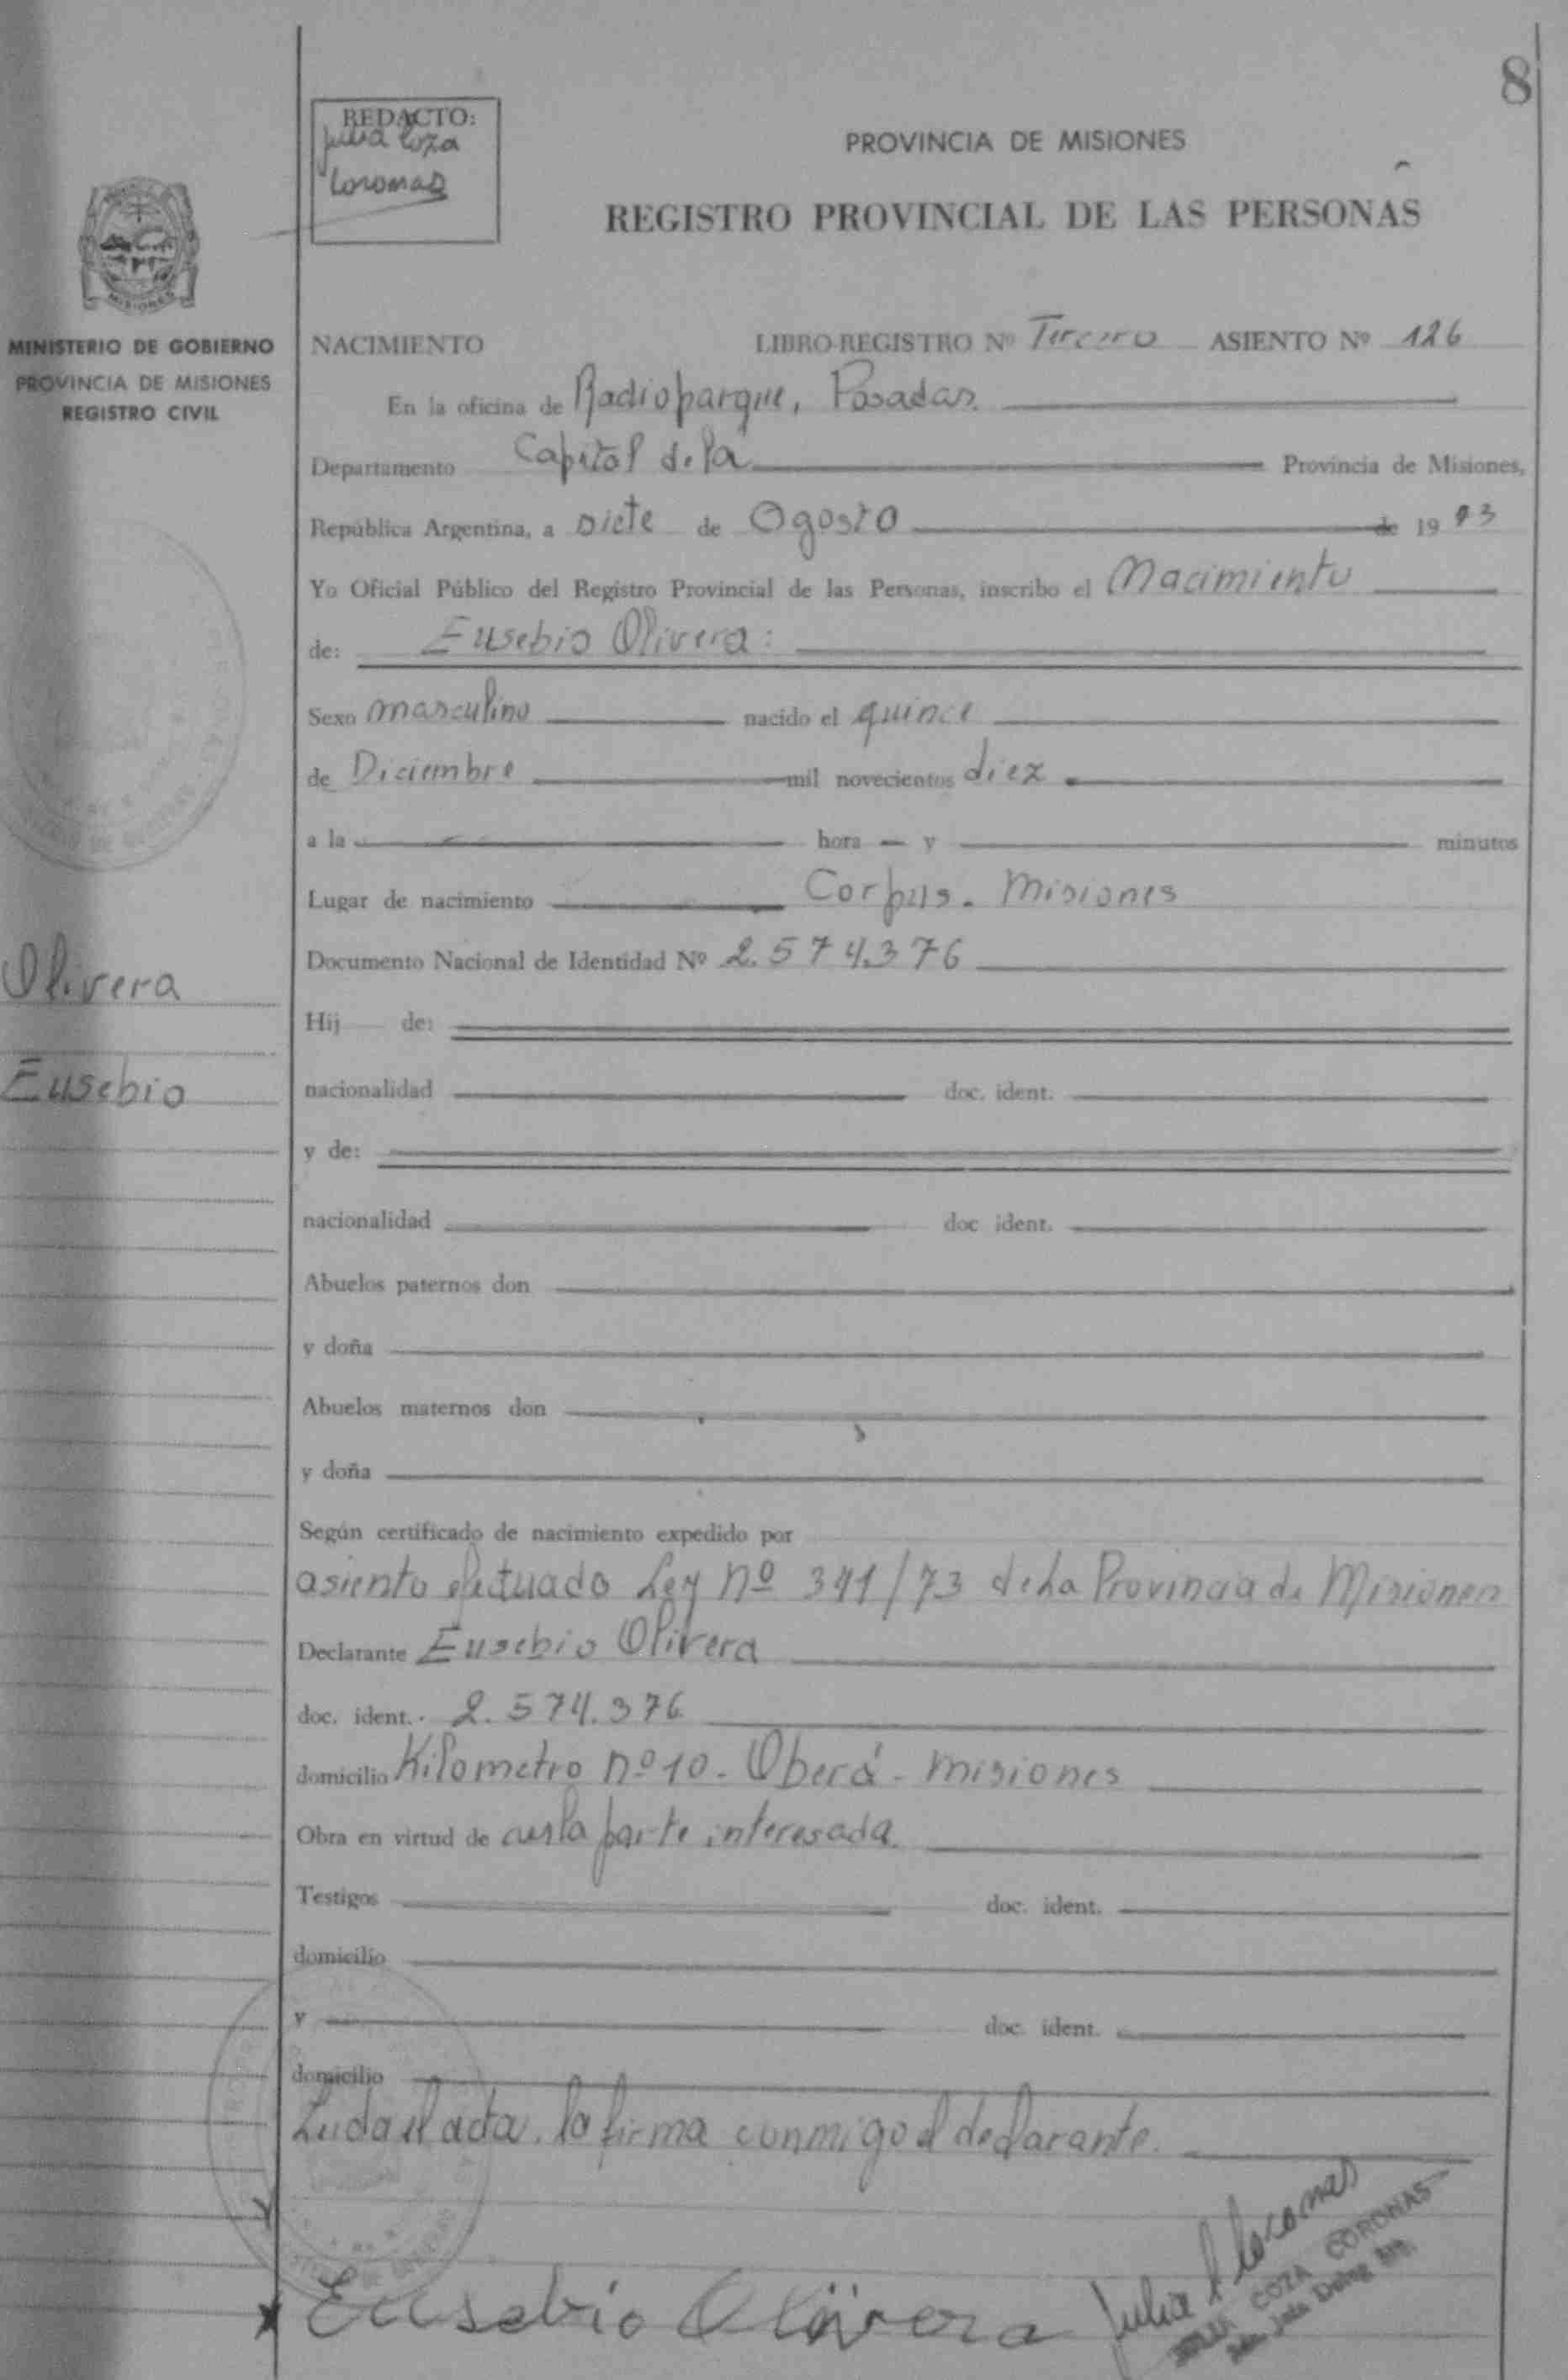 8
REDACTO:
Julia Coza
Coronas
PROVINCIA DE MISIONES
REGISTRO PROVINCIAL DE LAS PERSONAS
MISIONES
MINISTERIO DE GOBIERNO
PROVINCIA DE MISIONES
REGISTRO CIVIL
NACIMIENTO LIBRO-REGISTRO Nº Tercero ASIENTO Nº 126
En la oficina de Radioparque, Posadas.
Departamento Capital de la Provincia de Misiones,
República Argentina, a siete de Agosto de 1973
Yo Oficial Público del Registro Provincial de las Personas, inscribo el Nacimiento
de: Eusebio Olivera:
Sexo masculino nacido el quince
de Diciembre mil novecientos diez
a la hora y minutos
Lugar de nacimiento Corpus. Misiones
Documento Nacional de Identidad Nº 2.574.376
Olivera
Eusebio
Hij de:
nacionalidad doc. ident.
y de:
nacionalidad doc ident.
Abuelos paternos don
y doña
Abuelos maternos don
y doña
Según certificado de nacimiento expedido por
asiento efectuado Ley nº 341/73 de La Provincia de Misiones
Declarante Eusebio Olivera
doc. ident. 2.574.376
domicilio Kilometro nº 10. Oberá - Misiones
Obra en virtud de parte interesada.
Testigos doc. ident.
domicilio
y doc. ident.
domicilio
Leida el acta. la firma conmigo el declarante.
Eusebio Olivera
Julia Coronas
COZA CORONAS